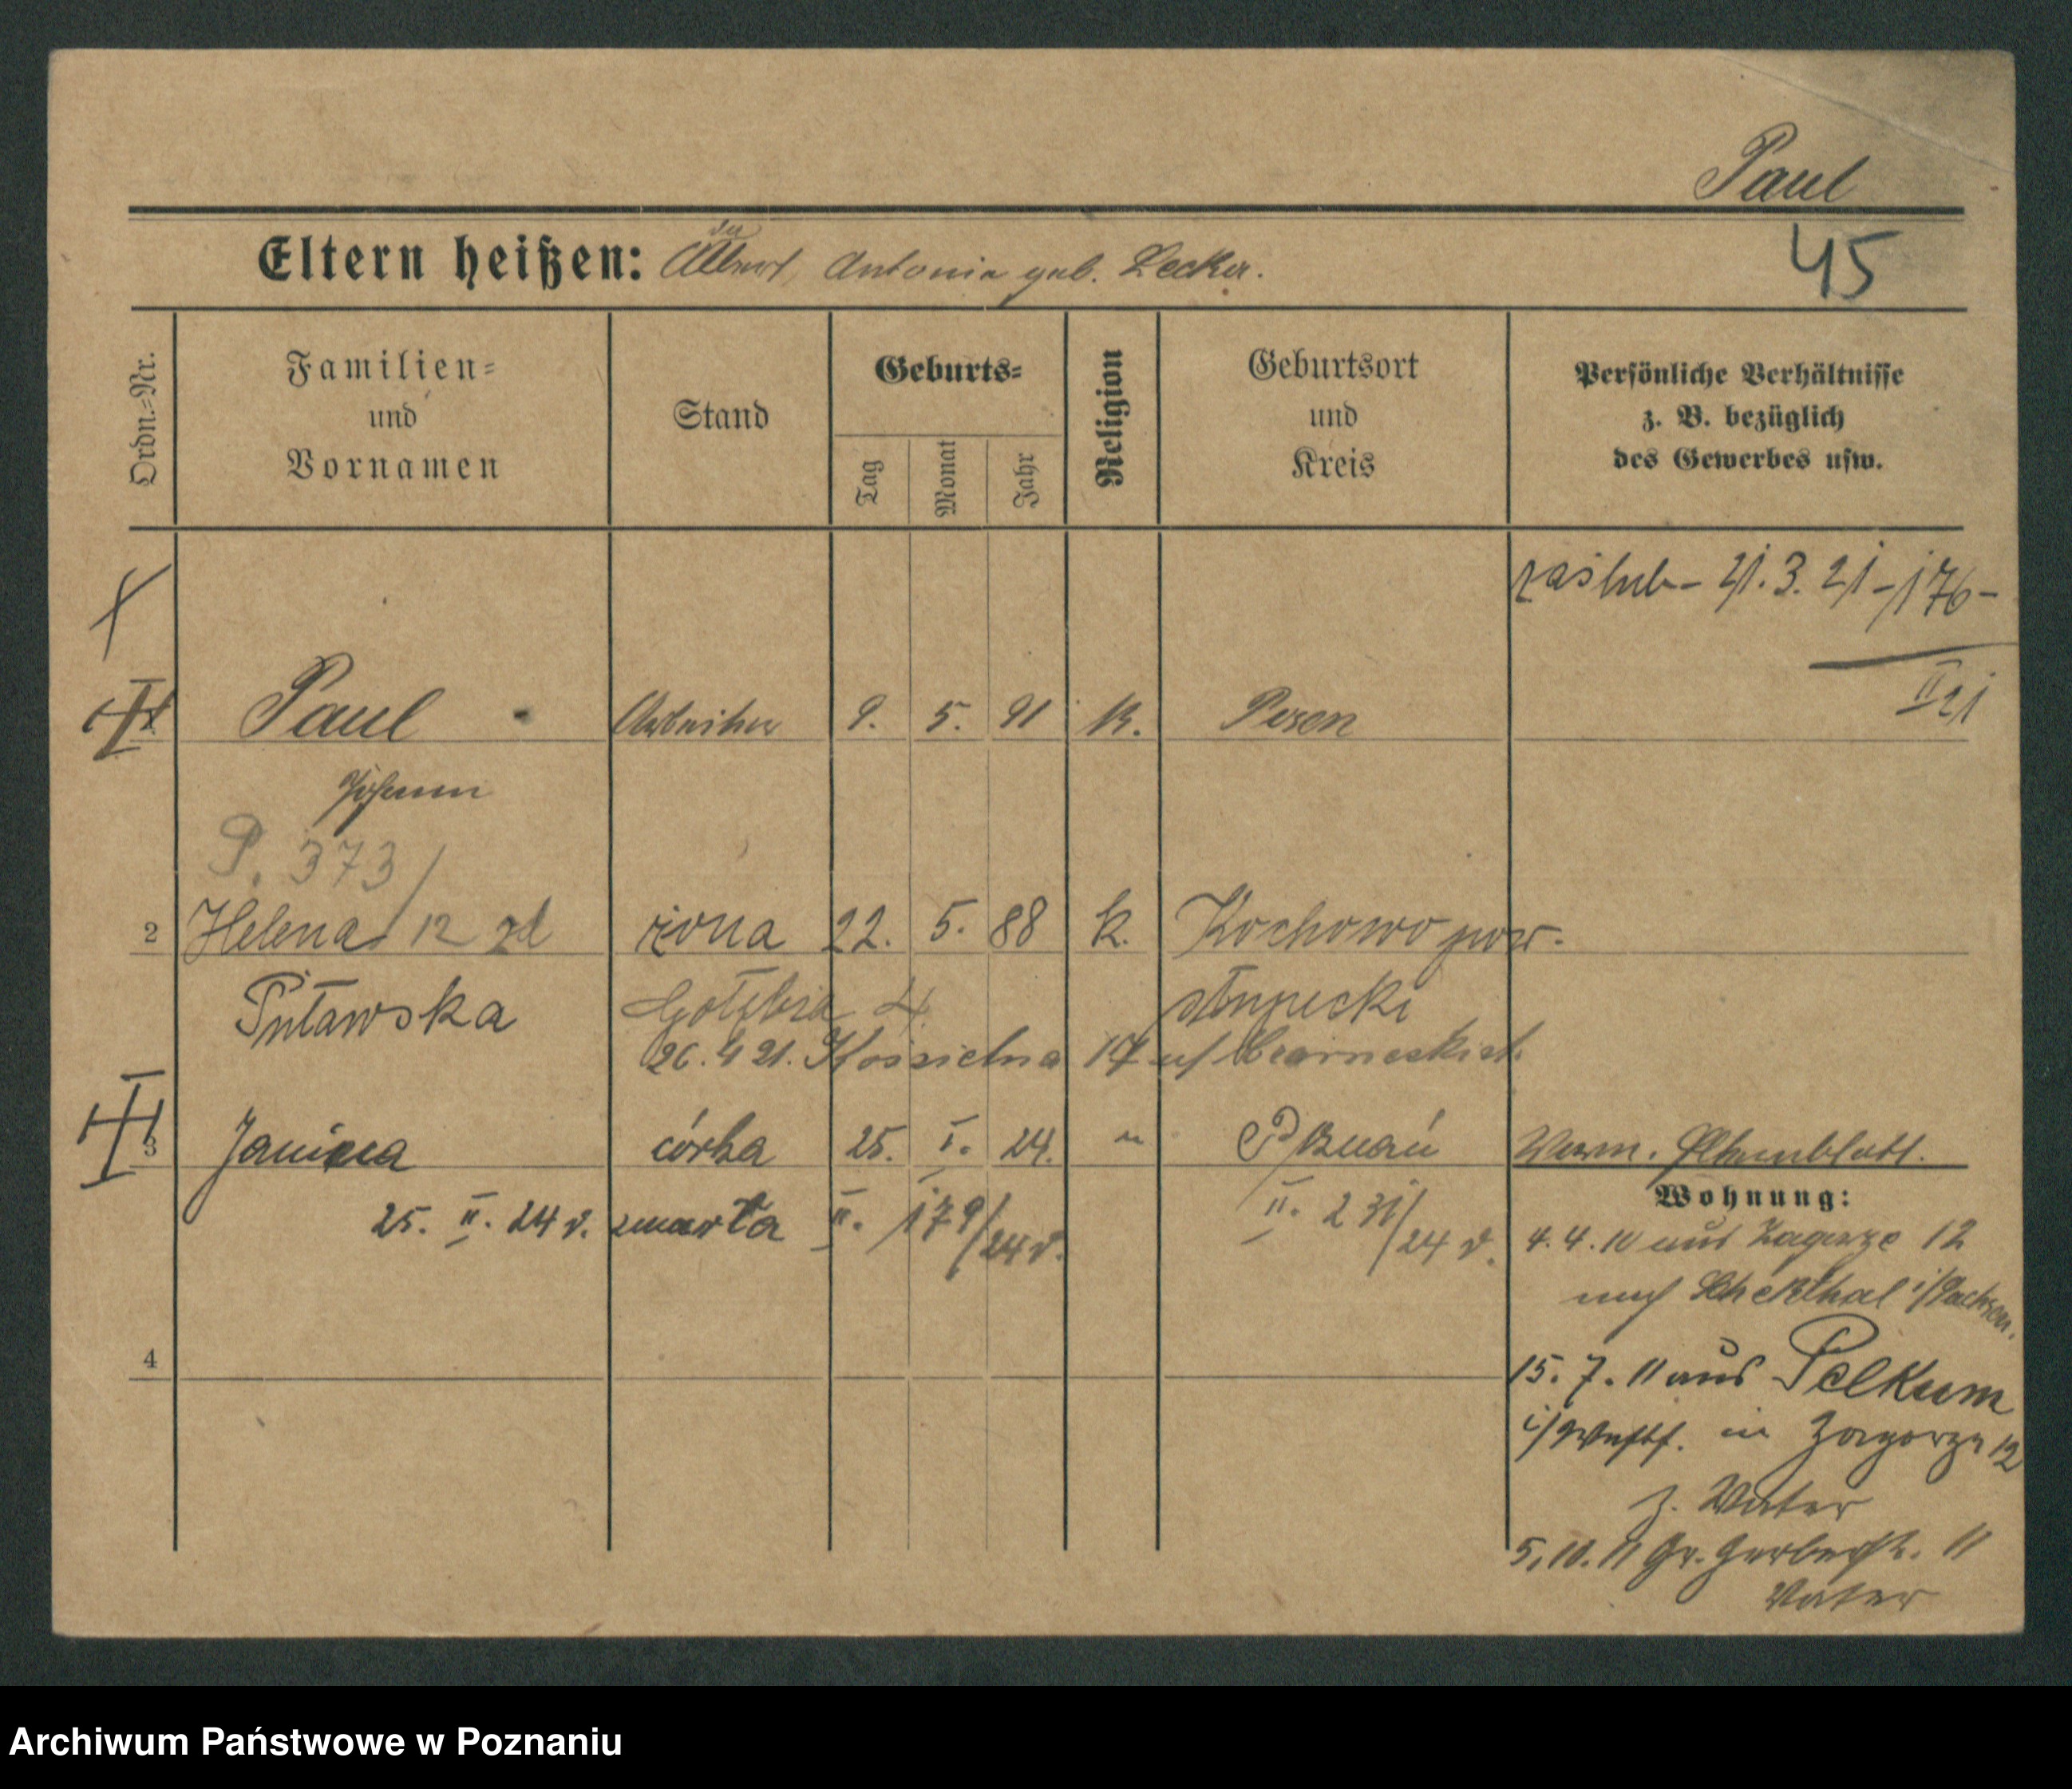 Paul
45
Eltern heißen: Albert, Antonia geb. Lecka.
Ordn.=Nr.
Familien=
und
Vornamen
Stand
Geburts=
Tag
Monat
Jahr
Religion
Geburtsort
und
Kreis
Persönliche Verhältnisse
z. B. bezüglich
des Gewerbes usw.
zaślub – 21. 3. 21 – 176 –
II 21
Paul Arbeiter 9. 5. 91 K. Posen
Johann
P. 373/
2 Helena 12 zd żona 22. 5. 88 k. Kochowo pow.
Pułtawska Gołębia 4 słupecki
26. 4 21. Kościelna 17 b/
3 Janina córka 25. I. 24. " Poznań Verm. Stammblatt.
25. II. 24 r. zmarła II. 179/24 r. II. 231/24 r.
Wohnung:
4. 4. 10 aus Zagorze 12
nach i/Sachsen.
15. 7. 11 aus Pelkum
i/Westf. in Zagorze 12
z. Vater
4
5. 10. 11 Gr. Gerberstr. 11
Vater
Archiwum Państwowe w Poznaniu